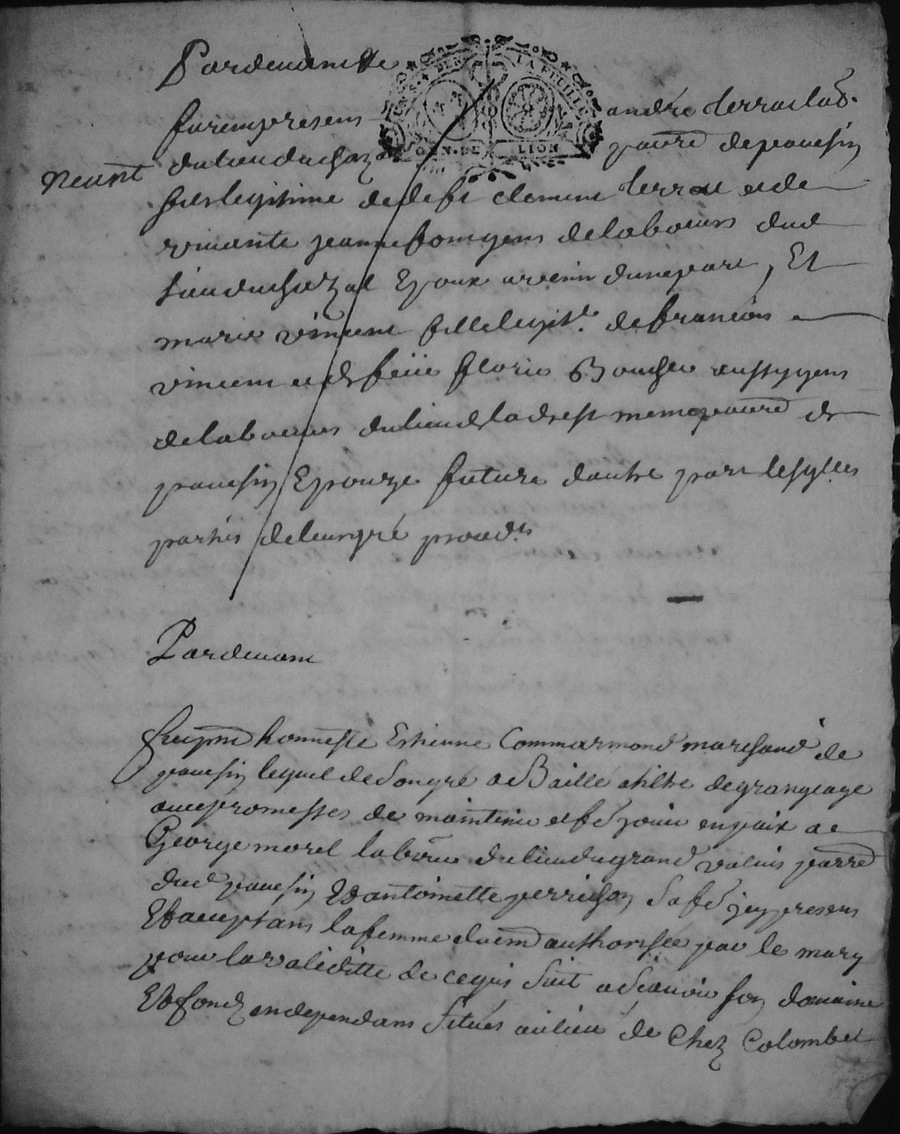 Pardevant
furent presens andré terras lab.
neant du lieu du chazal parr. de panesin
fils legitime de deft clement terras et de
vivante jeanne gens de labeurs dud
lieu du chazal Epoux avenir dune part, Et
marie vincent fille legit. de francois
vincent et de feüe florie Bouchu aussy gens
de labeurs du lieu de la mesme parr. de
panesin Epouze future dautre part lesqlles
parties de leur gré
Pardevant
fut pnt honneste Estienne Commarmond marchand de
panesin lequel de son gré a Baille a tiltre de grangeage
avec promesses de maintenir et fe. jouir en paix a
George morel labour. du lieu du grand parr.
dud panesin Et antoinette perrichon sa fe. icy presens
Et acceptans la femme duem. authorisée par le mary
pour la validitté de ce qui suit a Scavoir son domaine
Et fondz en dependans situés au lieu de Chez Colombet